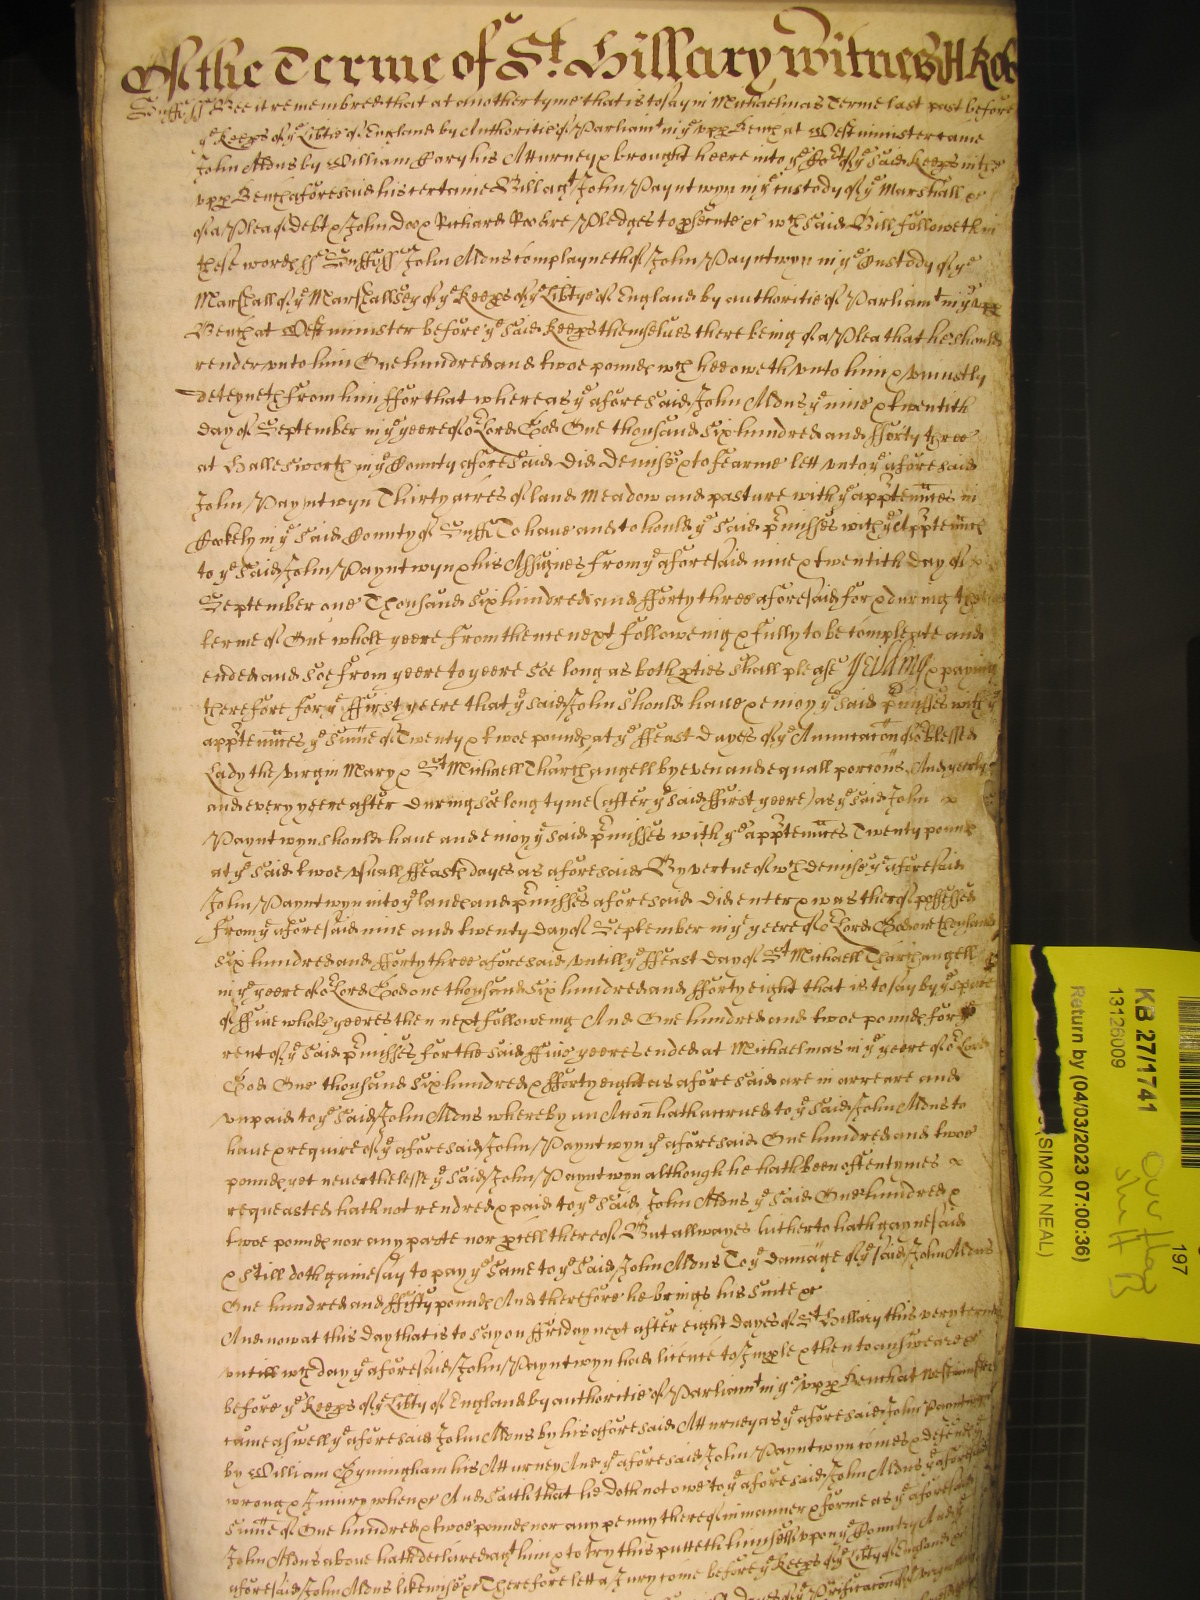 Of the Terme of St. Hillary Witnes H Ro
Suff ss Bee it remembred that at another tyme that is to say in Michaelmas Terme last past before
ye Keeps of ye Libtie of England by Authoritie of Parliamt in ye upp Bench at Westminster came
John Aldus by William Cory his Atturney & brought heere into ye Cort of ye said Keeps in the
upp Bench aforesaid his certaine Bill agt John Payntwyn in ye custody of ye Marshall &c
of a Plea of debt & John Doo & Richard Roo are Pledges to psecute &c wch said Bill followeth in
these words ss Suff ss John Aldus complayneth of John Payntwyn in ye Custody of ye
Marshall of ye Marshallsey of ye Keeps of ye Libtye of England by authoritie of Parliamt in ye upp
Bench at Westminster before ye said Keeps themselues there being of a Plea that he should
render unto him One hundred and twoe pounds wch hee oweth unto him & uniustly
deteyneth from him ffor that whereas ye aforesaid John Aldus ye nine & twentith
day of September in ye yeere of or Lord God One thousand six hundred and fforty three
at Hallesworth in ye County aforesaid did demise & to fearme lett unto ye aforesaid
John Payntwyn Thirty acres of land meadow and pasture with ye apptennces in
Cookely in ye said County of Suff To haue and to hould ye said pmisses with ye Apptennces
to ye said John Payntwyn & his Assignes from ye aforesaid nine & twentith day of
September one Thousand six hundred and fforty three aforesaid for & during the
terme of One whole yeere from thence next followeing & fully to be compleate and
ended and soe from yeere to yeere soe long as both pties shall please Yeilding & paying
therefore for ye ffirst yeere that ye said John should haue & enioy ye said pmisses with ye
apptennces ye sume of Twenty & twoe pounds at ye ffeast dayes of ye Annunciacon of or blessed
Lady the virgin Mary & St Michaell Tharchangell by even and equall porcons And yeerly
and every yeere after during soe long tyme (after ye said ffirst yeere) as ye said John
Payntwyn should haue and enioy ye said pmisses with ye apptennces Twenty pounds
at ye said twoe usuall ffeasts dayes as aforesaid By vertue of wch demise ye aforesaid
John Payntwyn into ye lands and pmisses aforesaid did enter & was thereof possessed
from ye aforesaid nine and twenty day of September in ye yeere of or Lord God one thousand
six hundred and fforty three aforesaid untill ye ffeast day of St Michaell Tharchangell
in ye yeere of or Lord God one thousand six hundred and fforty eight that is to say by ye space
of ffiue whole yeeres then next followeing And One hundred and twoe pounds for
rent of ye said pmisses for the said ffiue yeeres ended at Michaelmas in ye yeere of or Lord
God One thousand six hundred & fforty eight as aforesaid are in arreare and
unpaid to ye said John Aldus whereby an Accon hath accrued to ye said John Aldus to
haue & require of ye aforesaid John Payntwyn ye aforesaid One hundred and twoe
pounds yet neuerthelesse ye said John Payntwyn although he hath been oftentymes
requested hath not rendred & paid to ye said John Aldus ye said One hundred &
twoe pounds nor any parte nor pcell thereof But allwayes hitherto hath gaynesaid
& still doth gainesay to pay ye same to ye said John Aldus To ye damage of ye said John Aldus
One hundred and ffifty pounds And therefore he brings his suite &c
And now at this day that is to say on ffriday next after eight dayes of St Hillary this very terme
untill wch day ye aforesaid John Payntwyn had licence to Imple & then to answeare &c
before ye Keeps of ye Libty of England by authoritie of Parliamt in ye upp Bench at Westminster
came aswell ye aforesaid John Aldus by his aforesaid Atturney as ye aforesaid John Payntwyn
by William Gynningham his Atturney And ye aforesaid John Payntwyn comes & defends ye
wrong & Iniury when &c And saith that he doth not owe to ye aforesaid John Aldus ye aforesaid
sume of One hundred & twoe pounds nor any penny thereof in manner & forme as ye aforesaid
John Aldus aboue hath declared agt him & to try this putteth himselfe upon ye Country And ye
aforesaid John Aldus likewise &c Therefore lett a Jury come before ye Keeps of ye Libty of England
dayes of ye Purificacon of ye
KB 27/1741
13126009
Return by (04/03/2023 07:00:36)
(SIMON NEAL)
197